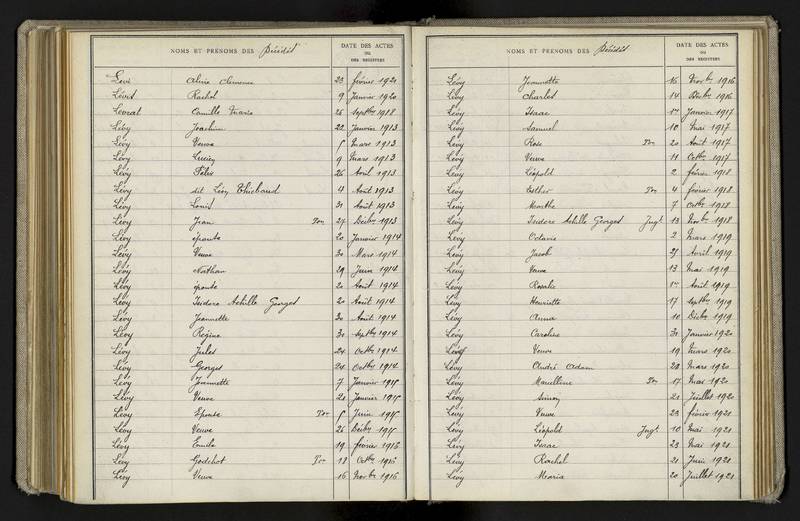 NOMS ET PRÉNOMS DES Décédés
DATE DES ACTES
OU
DES REGISTRES
Levi Aline Clemence 23 février 1921
Lévis Rachel 9 Janvier 1920
Levrat Camille Marie 26 Septbre 1918
Lévy Joachim 22 Janvier 1913
Lévy Veuve 5 Mars 1913
Lévy Lucien 9 Mars 1913
Lévy Félix 26 Avril 1913
Lévy dit Lévy Thiebaud 4 Août 1913
Lévy Louis 31 Août 1913
Lévy Jean Ton 27 Décbre 1913
Lévy épouse 20 Janvier 1914
Lévy Veuve 30 Mars 1914
Lévy Nathan 29 Juin 1914
Lévy épouse 20 Août 1914
Lévy Isidore Achille Georges 20 Août 1914
Lévy Jeannette 30 Août 1914
Lévy Régine 30 Septbre 1914
Lévy Jules 24 Octbre 1914
Lévy Georges 24 Octbre 1914
Lévy Jeannette 7 Janvier 1915
Lévy Veuve 21 Janvier 1915
Lévy Epouse Ton 5 Juin 1915
Lévy Veuve 26 Décbre 1915
Lévy Emile 19 février 1916
Lévy Godchot Ton 18 Octbre 1916
Lévy Veuve 16 Novbre 1916
NOMS ET PRÉNOMS DES Décédés
DATE DES ACTES
OU
DES REGISTRES
Lévy Jeannette 16 Novbre 1916
Lévy Charles 14 Décbre 1916
Lévy Isaac 1er Janvier 1917
Lévy Samuel 10 Mai 1917
Lévy Rose Ton 20 Août 1917
Lévy Veuve 11 Octbre 1917
Lévy Léopold 2 février 1918
Lévy Esther Ton 4 février 1918
Lévy Marthe 7 Octbre 1918
Lévy Isidore Achille Georges Jugt 13 Novbre 1918
Lévy Octavie 2 Mars 1919
Lévy Jacob 25 Avril 1919
Lévy Veuve 13 Mai 1919
Lévy Rosalie 1er Août 1919
Lévy Henriette 17 Septbre 1919
Lévy Anna 10 Décbre 1919
Lévy Caroline 31 Janvier 1920
Lévy Veuve 19 Mars 1920
Lévy André Adam 28 Mars 1920
Lévy Marcelline Ton 17 Mai 1920
Lévy Simon 21 Juillet 1920
Lévy Veuve 23 février 1921
Lévy Léopold Jugt 10 Mai 1921
Lévy Isaac 23 Mai 1921
Lévy Rachel 21 Juin 1921
Lévy Maria 20 Juillet 1921